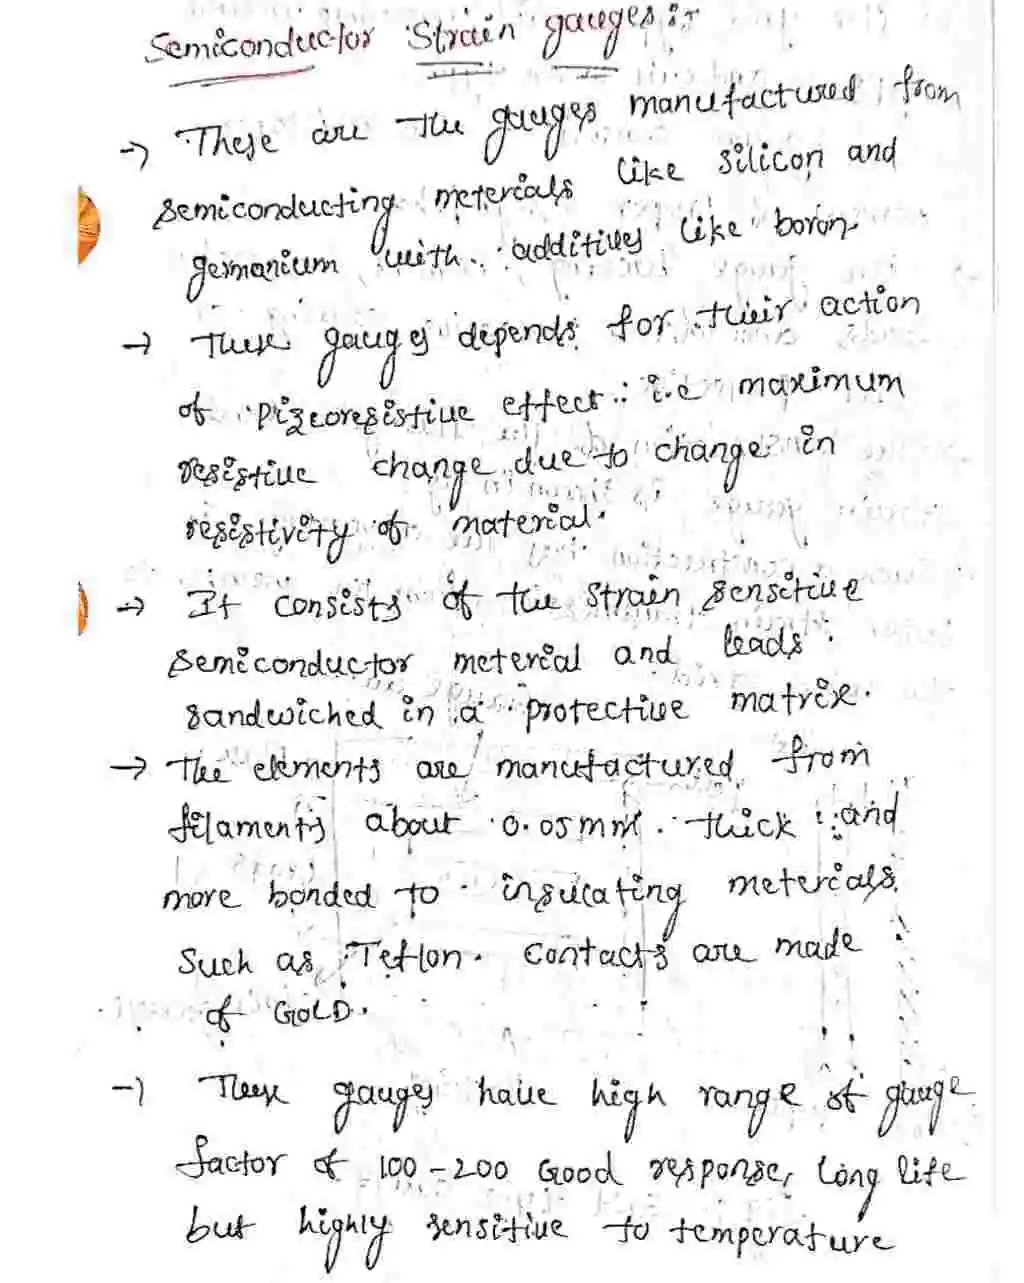 Semiconductor Strain gauges:-
→ These are the gauges manufactured from
semiconducting meterials like silicon and
germanium with additives like boron.
→ These gauges depends for their action
of pizeoresistive effect i.e maximum
resistive change due to change in
resistivity of material.
→ It consists of the strain sensitive
semiconductor meterial and leads
sandwiched in a protective matrix.
→ The elements are manufactured from
filaments about 0.05mm. thick and
more bonded to insulating meterials
such as Teflon. Contacts are made
of GOLD.
→ These gauges have high range of gauge
factor of 100-200 Good response, long life
but highly sensitive to temperature